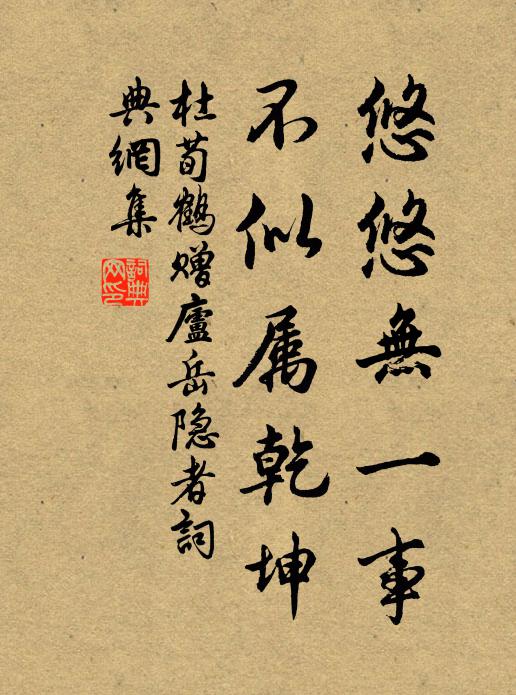 悠悠無一事
不似属乾坤
杜荀鶴赠廬岳隐者詞
典網集
詞典
网印